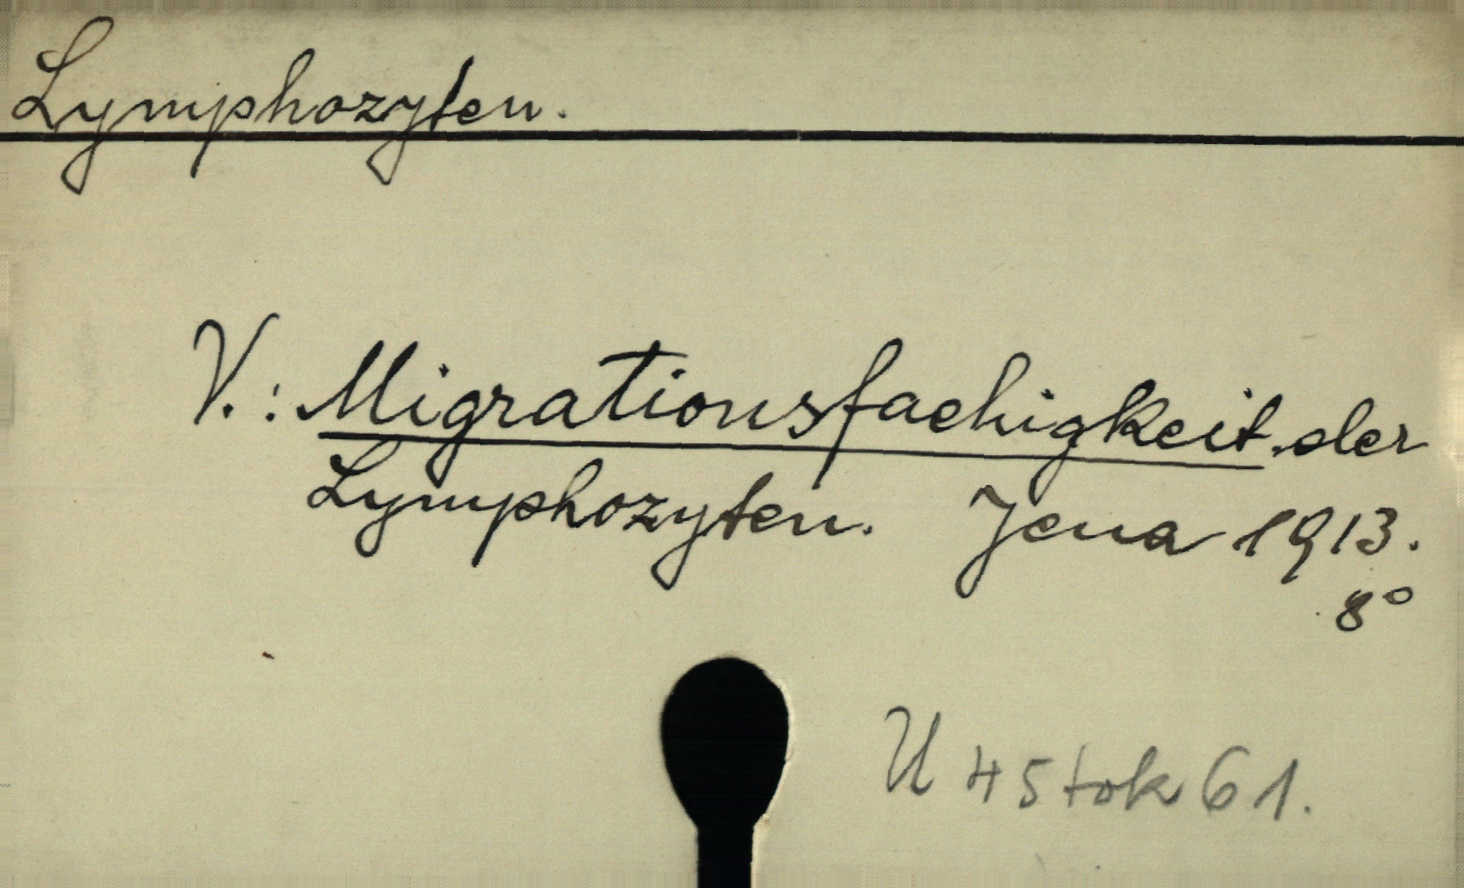 Lymphozyten.
V.: Migrationsfaehigkeit der
Lymphozyten. Jena 1913.
8°
U 45 tok 61.